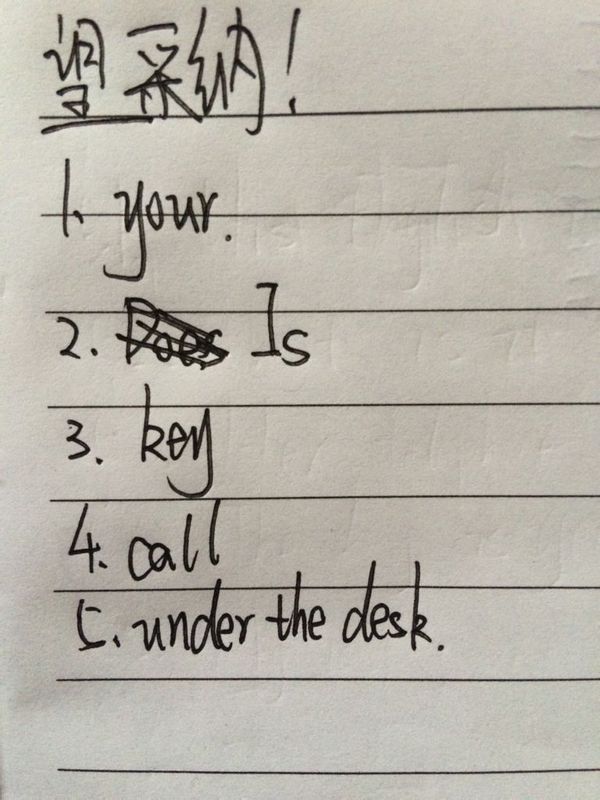 望采纳!
1. your.
2. Is
3. key
4. call
5. under the desk.